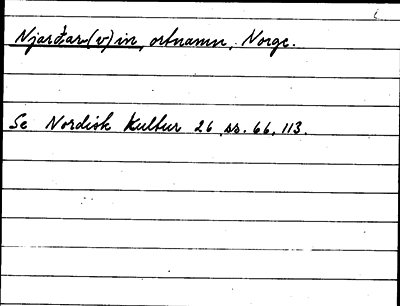 Njarðar(v)in, ortnamn, Norge.
Se Nordisk Kultur 26, ss. 66, 113.